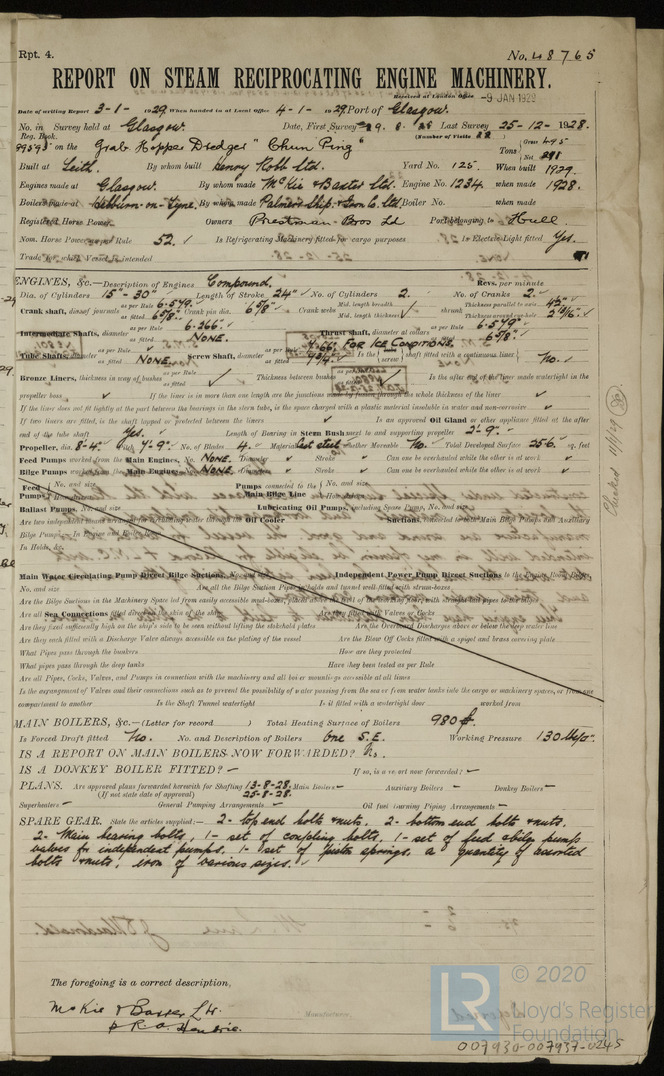 Rpt. 4.
No. 48765
REPORT ON STEAM RECIPROCATING ENGINE MACHINERY.
Received at London Office -9 JAN 1929
Date of writing Report 3-1-1929 When handed in at Local Office 4-1-1929 Port of Glasgow.
No. in Survey held at Glasgow. Date, First Survey Last Survey 25-12-1928.
Reg. Book. (Number of Visits 22)
on the Grab Hopper Dredger "Chun Ping" Tons Gross 495 Net 291
Built at Leith. By whom built Henry Robb Ltd. Yard No. 125. When built 1929.
Engines made at Glasgow. By whom made McKie & Baxter Ltd. Engine No. 1234. when made 1928.
Boilers made at Hebburn-on-Tyne. By whom made Palmers Ship. & Iron Co. Ltd. Boiler No. when made
Registered Horse Power Owners Priestman Bros Ld Port belonging to Hull
Nom. Horse Power as per Rule 52. Is Refrigerating Machinery fitted for cargo purposes Is Electric Light fitted Yes.
Trade for which Vessel is intended
ENGINES, &c.—Description of Engines Compound. Revs. per minute
Dia. of Cylinders 15"-30" Length of Stroke 24" No. of Cylinders 2. No. of Cranks 2.
Crank shaft, dia. of journals as per Rule 6.579. as fitted 6 5/8" Crank pin dia. 6 5/8" Crank webs Mid. length breadth Mid. length thickness shrunk Thickness parallel to axis 4 1/2" Thickness around eye-hole 2 15/16"
Intermediate Shafts, diameter as per Rule 6.266. as fitted NONE. Thrust Shaft, diameter at collars as per Rule 6.579. as fitted 6 5/8.
Tube Shafts, diameter as per Rule as fitted NONE. Screw Shaft, diameter as per Rule FOR ICE CONDITIONS. as fitted 7 3/4" Is the screw shaft fitted with a continuous liner No.
Bronze Liners, thickness in way of bushes as per Rule as fitted Thickness between bushes Is the after end of the liner made watertight in the
propeller boss If the liner is in more than one length are the junctions made by fusion through the whole thickness of the liner
If the liner does not fit tightly at the part between the bearings in the stern tube, is the space charged with a plastic material insoluble in water and non-corrosive
If two liners are fitted, is the shaft lapped or protected between the liners Is an approved Oil Gland or other appliance fitted at the after
end of the tube shaft Yes. Length of Bearing in Stern Bush next to and supporting propeller 2'-9".
Propeller, dia. 8'-4" Pitch 7'-9". No. of Blades 4. Material Cast steel whether Moveable No. Total Developed Surface 25.6. sq. feet
Feed Pumps worked from the Main Engines, No. NONE. Diameter Stroke Can one be overhauled while the other is at work
Bilge Pumps worked from the Main Engines, No. NONE. Diameter Stroke Can one be overhauled while the other is at work
Feed Pumps No. and size Pumps connected to the Main Bilge Line No. and size
Ballast Pumps, No. and size Lubricating Oil Pumps, including Spare Pump, No. and size
Are two independent means arranged for circulating water through the Oil Cooler Suctions, connected to both Main Bilge Pumps and Auxiliary
Bilge Pumps;—In Engine and Boiler Room
In Holds, &c.
Main Water Circulating Pump Direct Bilge Suctions, No. and size Independent Power Pump Direct Suctions to the Engine Room Bilges,
No. and size Are all the Bilge Suction Pipes in holds and tunnel well fitted with strum-boxes
Are the Bilge Suctions in the Machinery Space led from easily accessible mud-boxes, placed above the level of the working floor, with straight tail pipes to the bilges
Are all Sea Connections fitted direct on the skin of the ship Are they fitted with Valves or Cocks
Are they fixed sufficiently high on the ship's side to be seen without lifting the stokehold plates Are the Overboard Discharges above or below the deep water line
Are they each fitted with a Discharge Valve always accessible on the plating of the vessel Are the Blow Off Cocks fitted with a spigot and brass covering plate
What Pipes pass through the bunkers How are they protected
What pipes pass through the deep tanks Have they been tested as per Rule
Are all Pipes, Cocks, Valves, and Pumps in connection with the machinery and all boiler mountings accessible at all times
Is the arrangement of Valves and their connections such as to prevent the possibility of water passing from the sea or from water tanks into the cargo or machinery spaces, or from one
compartment to another Is the Shaft Tunnel watertight Is it fitted with a watertight door worked from
MAIN BOILERS, &c.—(Letter for record ) Total Heating Surface of Boilers 980
Is Forced Draft fitted No. No. and Description of Boilers One S.E. Working Pressure 130 lbs/□".
IS A REPORT ON MAIN BOILERS NOW FORWARDED? No.
IS A DONKEY BOILER FITTED? — If so, is a report now forwarded? —
PLANS. Are approved plans forwarded herewith for Shafting 13-8-28. 25-8-28. Main Boilers — Auxiliary Boilers — Donkey Boilers —
(If not state date of approval)
Superheaters — General Pumping Arrangements — Oil fuel Burning Piping Arrangements —
SPARE GEAR. State the articles supplied:— 2- top end bolts & nuts, 2- bottom end bolts & nuts,
2- Main bearing bolts, 1- set of coupling bolts, 1- set of feed & bilge pump
valves for independent pumps, 1- set of piston springs, a quantity of assorted
bolts & nuts, iron of various sizes.
The foregoing is a correct description,
McKie & Baxter Ltd.
Manufacturer.
© 2020
LR
Lloyd's Register
Foundation
007930-007937-0245